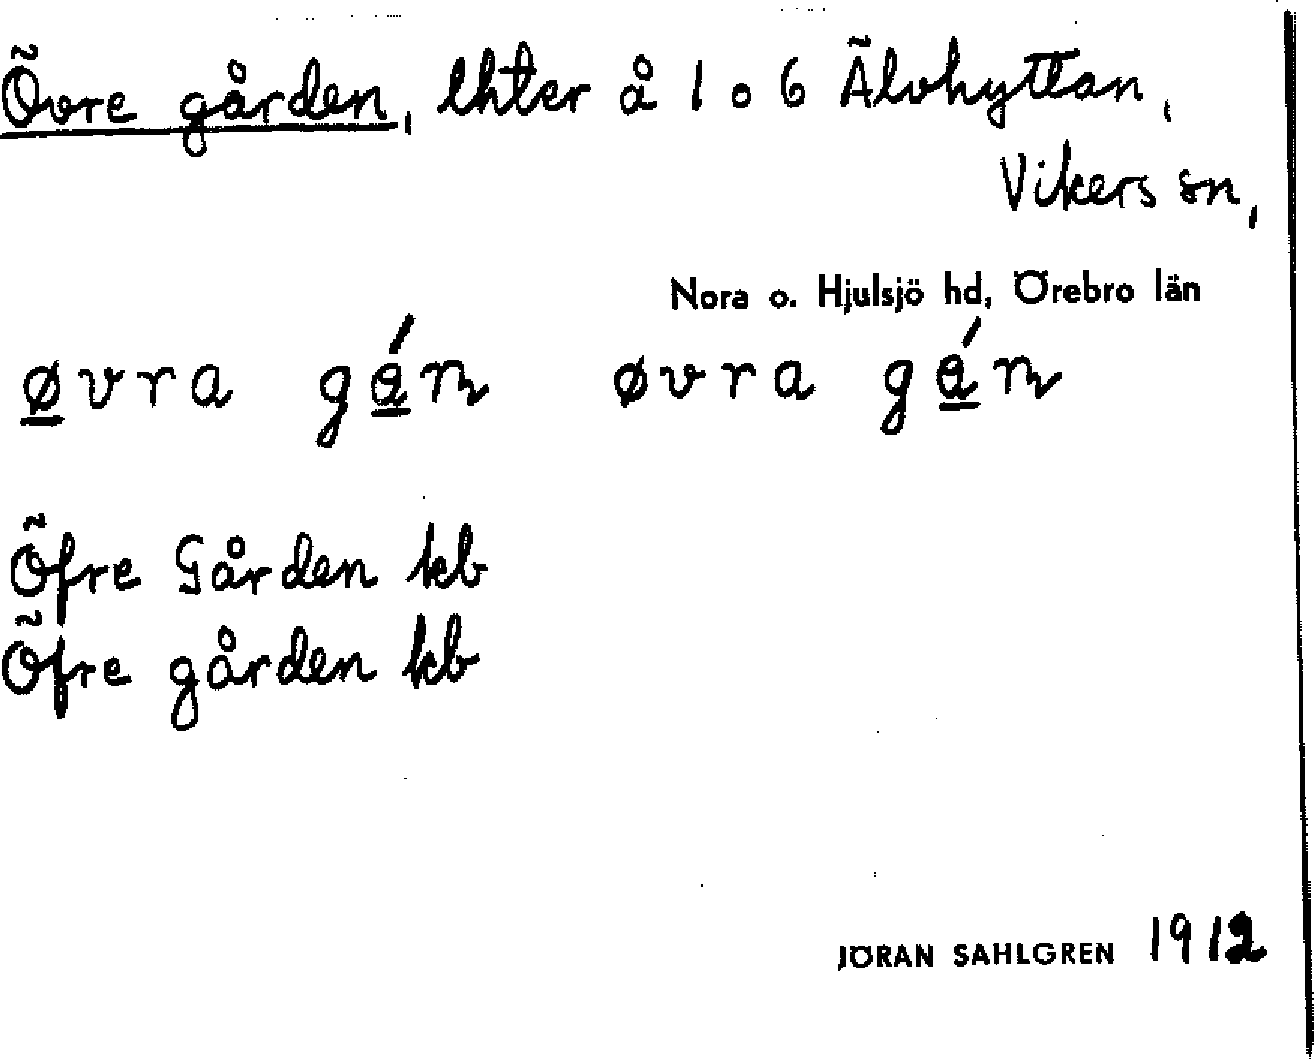 Övre gården, lhter å 1 o 6 Älvhyttan,
Vikers sn,
Nora o. Hjulsjö hd, Örebro län
øvra gán øvra gán
Öfre Gården kb
Öfre gården kb
JÖRAN SAHLGREN 1912